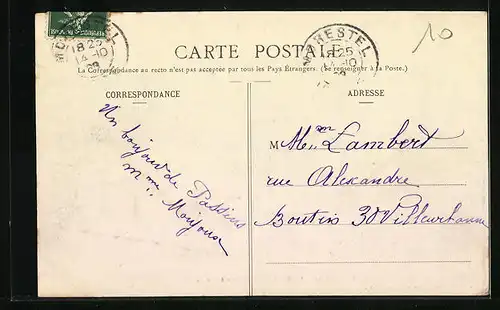 10
MORESTEL
18 25
14-10
MORESTEL
18 25
14-10
CARTE POSTALE
La Correspondance au recto n'est pas acceptée par tous les Pays Étrangers. (Se renseigner à la Poste.)
CORRESPONDANCE
ADRESSE
Un bonjour de Passins
Mme
M Mme Lambert
rue Alexandre
Boutin 30 Villeurbanne